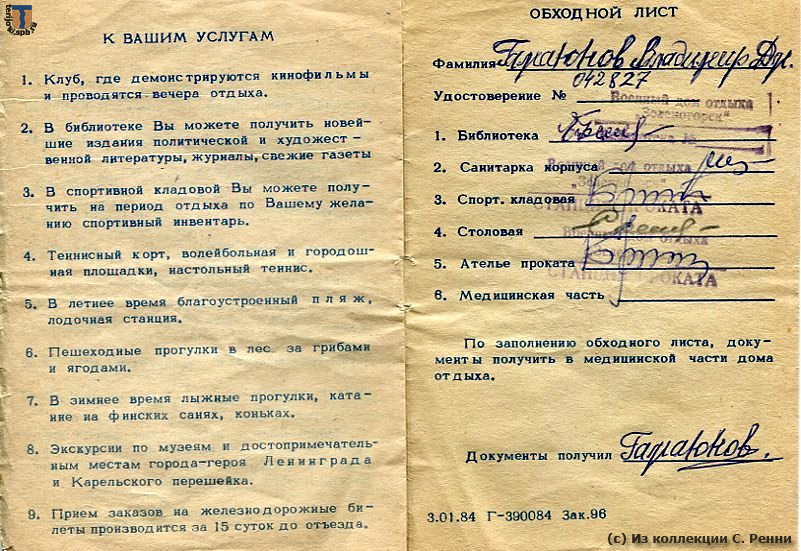 terijoki.spb.ru
К ВАШИМ УСЛУГАМ
1. Клуб, где демонстрируются кинофильмы
и проводятся вечера отдыха.
2. В библиотеке Вы можете получить новей-
шие издания политической и художест-
венной литературы, журналы, свежие газеты
3. В спортивной кладовой Вы можете полу-
чить на период отдыха по Вашему жела-
нию спортивный инвентарь.
4. Теннисный корт, волейбольная и городош-
ная площадки, настольный теннис.
5. В летнее время благоустроенный пляж,
лодочная станция.
6. Пешеходные прогулки в лес за грибами
и ягодами.
7. В зимнее время лыжные прогулки, ката-
ние на финских санях, коньках.
8. Экскурсии по музеям и достопримечатель-
ным местам города-героя Ленинграда
и Карельского перешейка.
9. Прием заказов на железнодорожные би-
леты производится за 15 суток до отъезда.
ОБХОДНОЙ ЛИСТ
Фамилия Владимир
Удостоверение № 042827
Военный дом отдыха
"Зеленогорск"
1. Библиотека
2. Санитарка корпуса
Военный дом отдыха
3. Спорт. кладовая
СТАНЦИЯ ПРОКАТА
4. Столовая
Военный дом отдыха
5. Ателье проката
СТАНЦИЯ ПРОКАТА
6. Медицинская часть
По заполнению обходного листа, доку-
менты получить в медицинской части дома
отдыха.
Документы получил
3.01.84 Г-390084 Зак.96
(c) Из коллекции С. Ренни